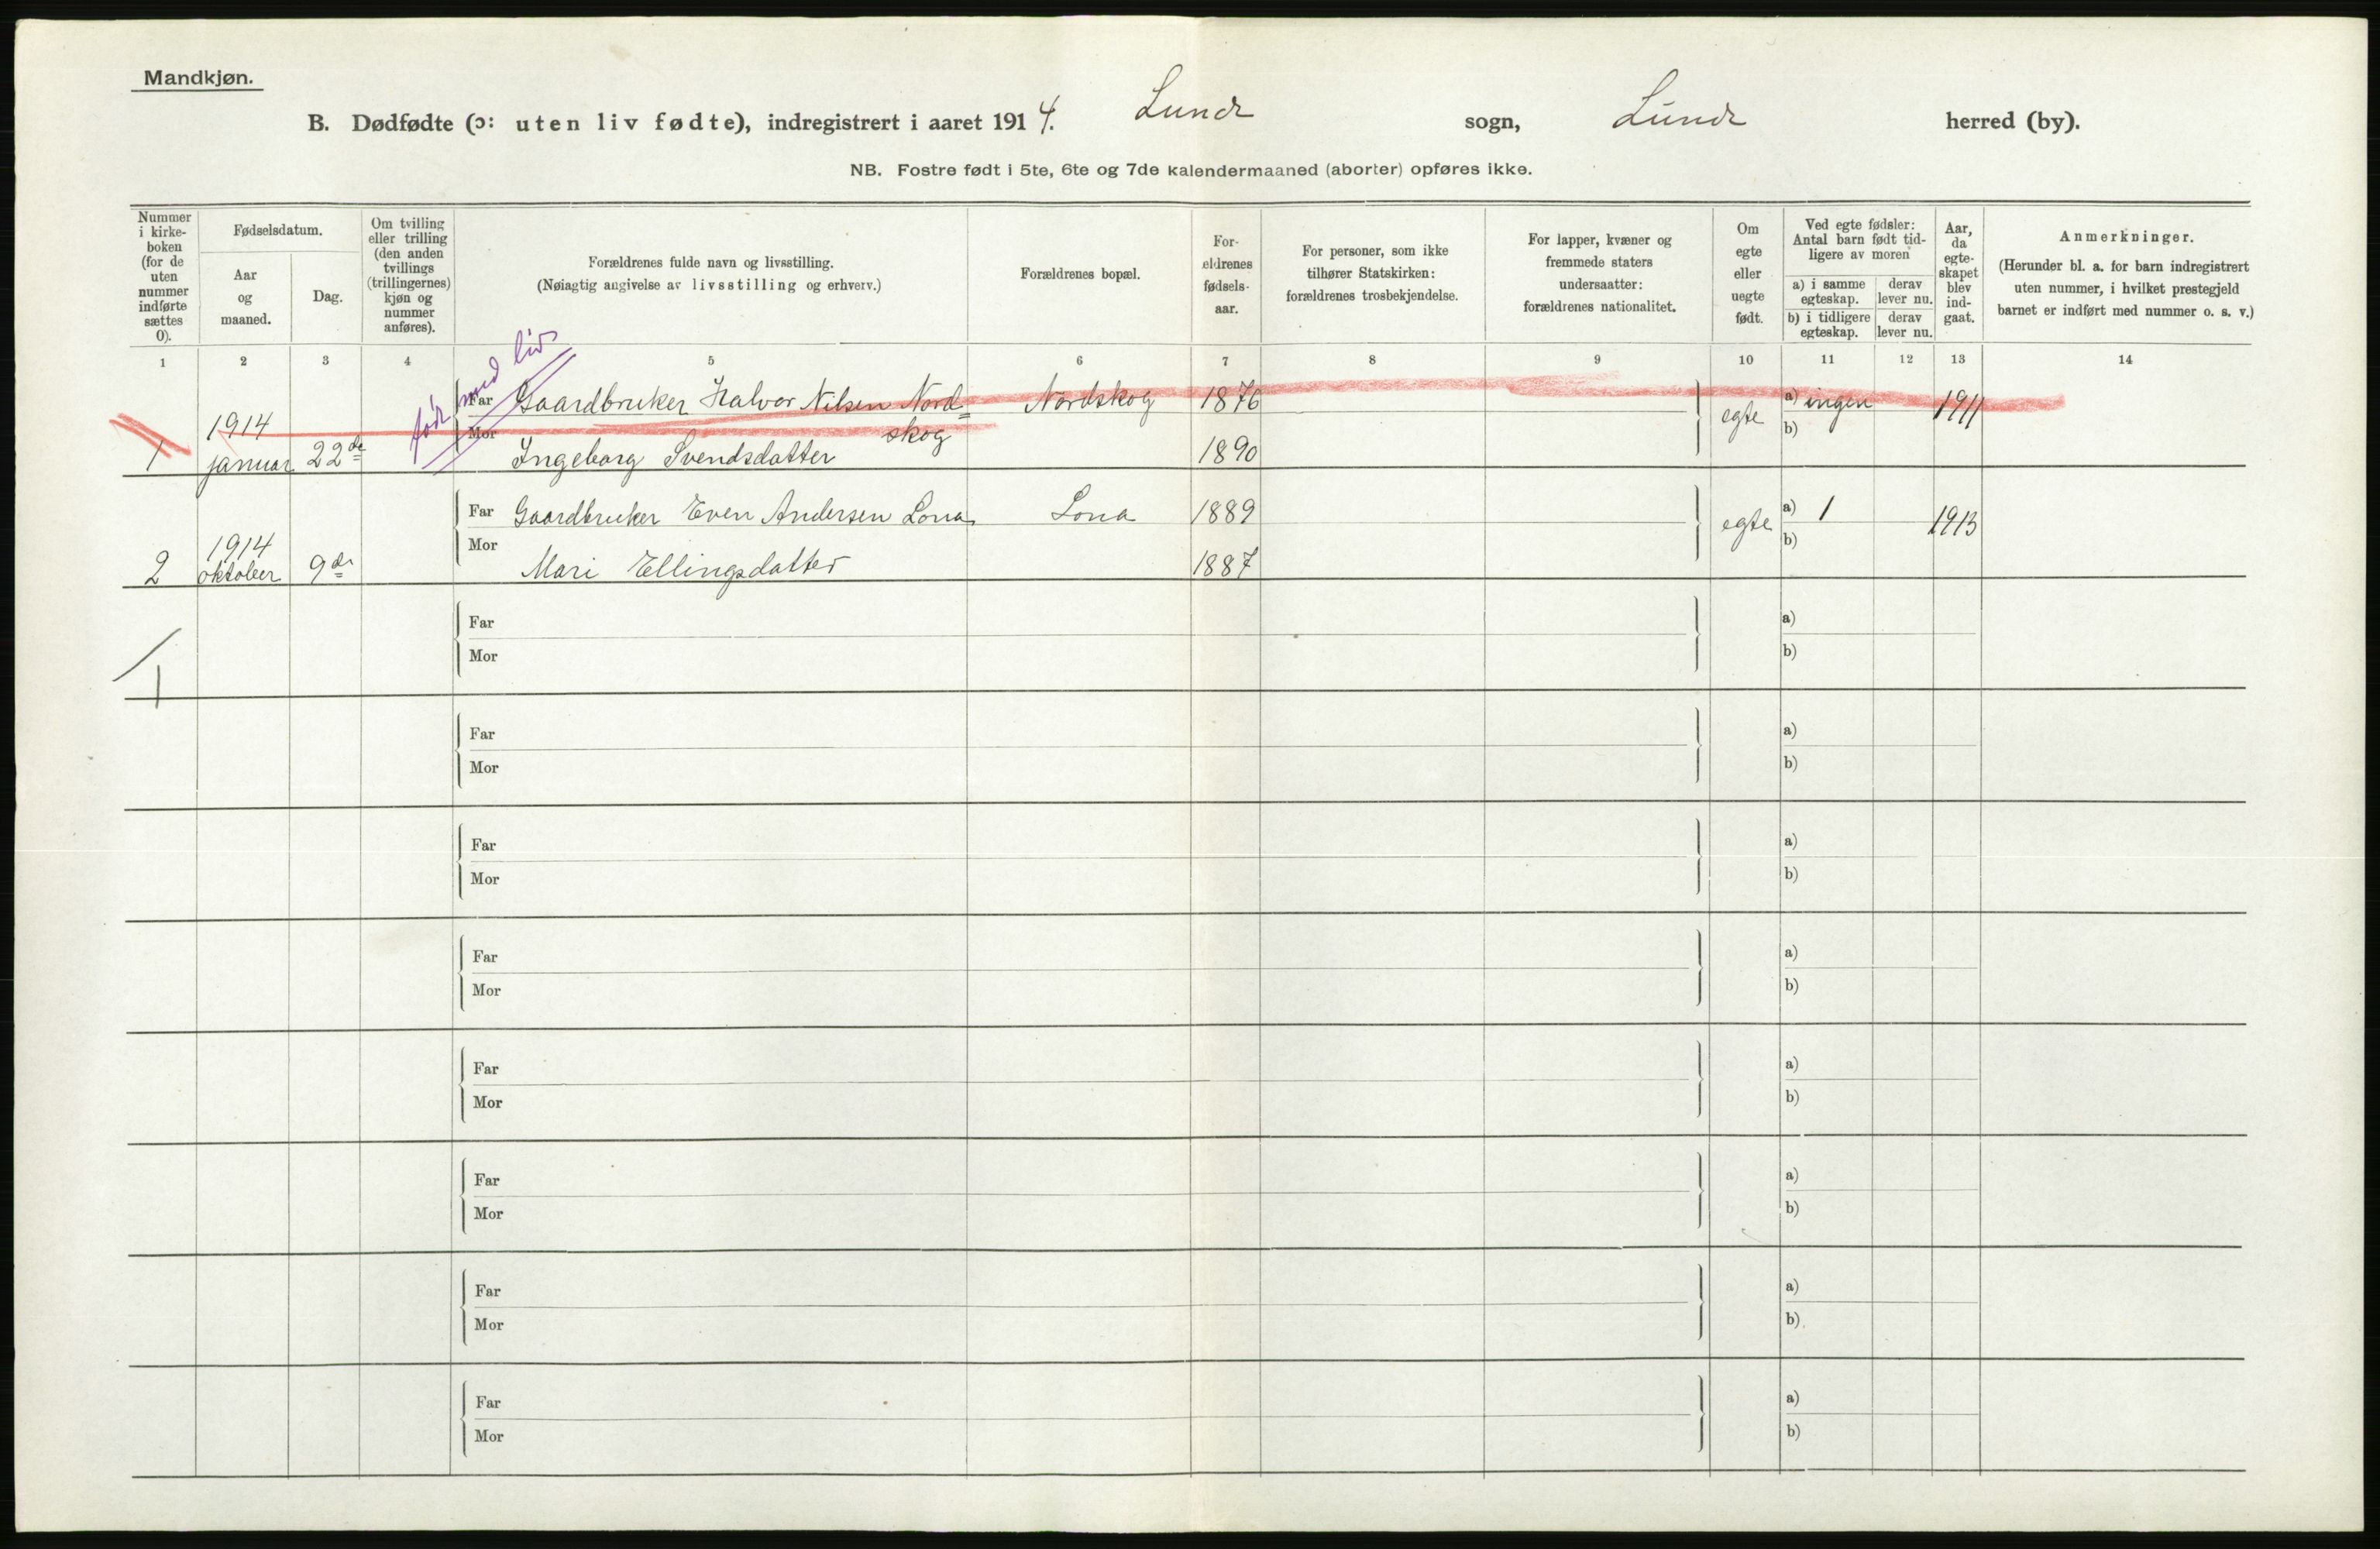 Mandkjøn.
B. Dødfødte (ɔ: uten liv fødte), indregistrert i aaret 1914. Lund sogn, Lund herred (by).
NB. Fostre født i 5te, 6te og 7de kalendermaaned (aborter) opføres ikke.
Nummer i kirke-boken (for de uten nummer indførte sættes 0).
Fødselsdatum.
Aar og maaned.
Dag.
Om tvilling eller trilling (den anden tvillings (trillingernes) kjøn og nummer anføres).
Forældrenes fulde navn og livsstilling.
(Nøiagtig angivelse av livsstilling og erhverv.)
Forældrenes bopæl.
For-ældrenes fødsels-aar.
For personer, som ikke tilhører Statskirken: forældrenes trosbekjendelse.
For lapper, kvæner og fremmede staters undersaatter: forældrenes nationalitet.
Om egte eller uegte født.
Ved egte fødsler: Antal barn født tid-ligere av moren
a) i samme egteskap.
derav lever nu.
b) i tidligere egteskap.
derav lever nu.
Aar, da egte-skapet blev ind-gaat.
Anmerkninger.
(Herunder bl. a. for barn indregistrert uten nummer, i hvilket prestegjeld barnet er indført med nummer o. s. v.)
1 2 3 4 5 6 7 8 9 10 11 12 13 14
født med liv
Far Gaardbruker Halvor Nilsen Nord= Nordskog 1876 a) ingen 1911
1914 Mor skog egte b)
1 januar 22de Ingeborg Svendsdatter 1890
Far Gaardbruker Even Andersen Lona Lona 1889 a) 1
1914 Mor egte b) 1913
2 oktober 9de Mari Ellingsdatter 1887
Far a)
Mor b)
1
Far a)
Mor b)
Far a)
Mor b)
Far a)
Mor b)
Far a)
Mor b)
Far a)
Mor b)
Far a)
Mor b)
Far a)
Mor b)